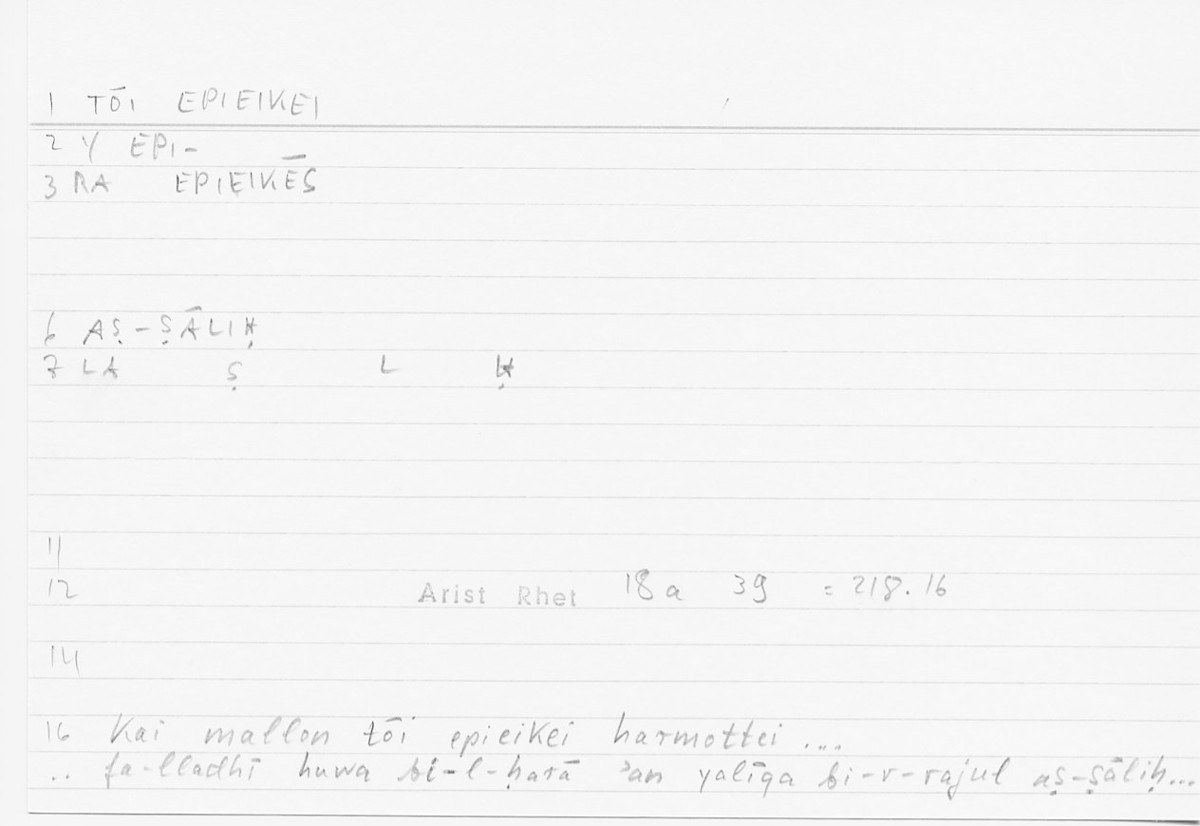 1 TŌI EPIEIKEI
2 Y EPI-
3 RA EPIEIKĒS
6 AṢ-ṢĀLIḤ
7 LA Ṣ L Ḥ
11
12 Arist Rhet 18a 39 = 218.16
14
16 Kai mallon tōi epieikei harmottei ...
.. fa-lladhī huwa bi-l-ḥarā ʾan yalīqa bi-r-rajul aṣ-ṣāliḥ...